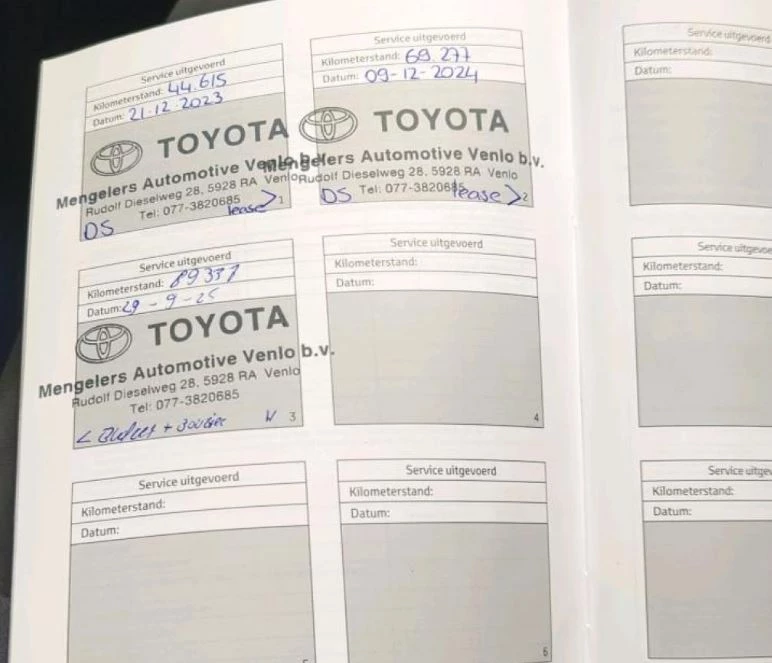 Service uitgevoerd
Kilometerstand: 44.615
Datum: 21.12.2023
TOYOTA
Mengelers Automotive Venlo b.v.
Rudolf Dieselweg 28, 5928 RA Venlo
Tel: 077-3820685
DS lease > 1
Service uitgevoerd
Kilometerstand: 69.277
Datum: 09-12-2024
TOYOTA
Mengelers Automotive Venlo b.v.
Rudolf Dieselweg 28, 5928 RA Venlo
Tel: 077-3820685
DS lease > 2
Service uitgevoerd
Kilometerstand:
Datum:
Service uitgevoerd
Kilometerstand: 89337
Datum: 29-9-25
TOYOTA
Mengelers Automotive Venlo b.v.
Rudolf Dieselweg 28, 5928 RA Venlo
Tel: 077-3820685
3
Service uitgevoerd
Kilometerstand:
Datum:
4
Service uitgevoe
Kilometerstand:
Datum:
Service uitgevoerd
Kilometerstand:
Datum:
Service uitgevoerd
Kilometerstand:
Datum:
6
Service uitgev
Kilometerstand:
Datum: